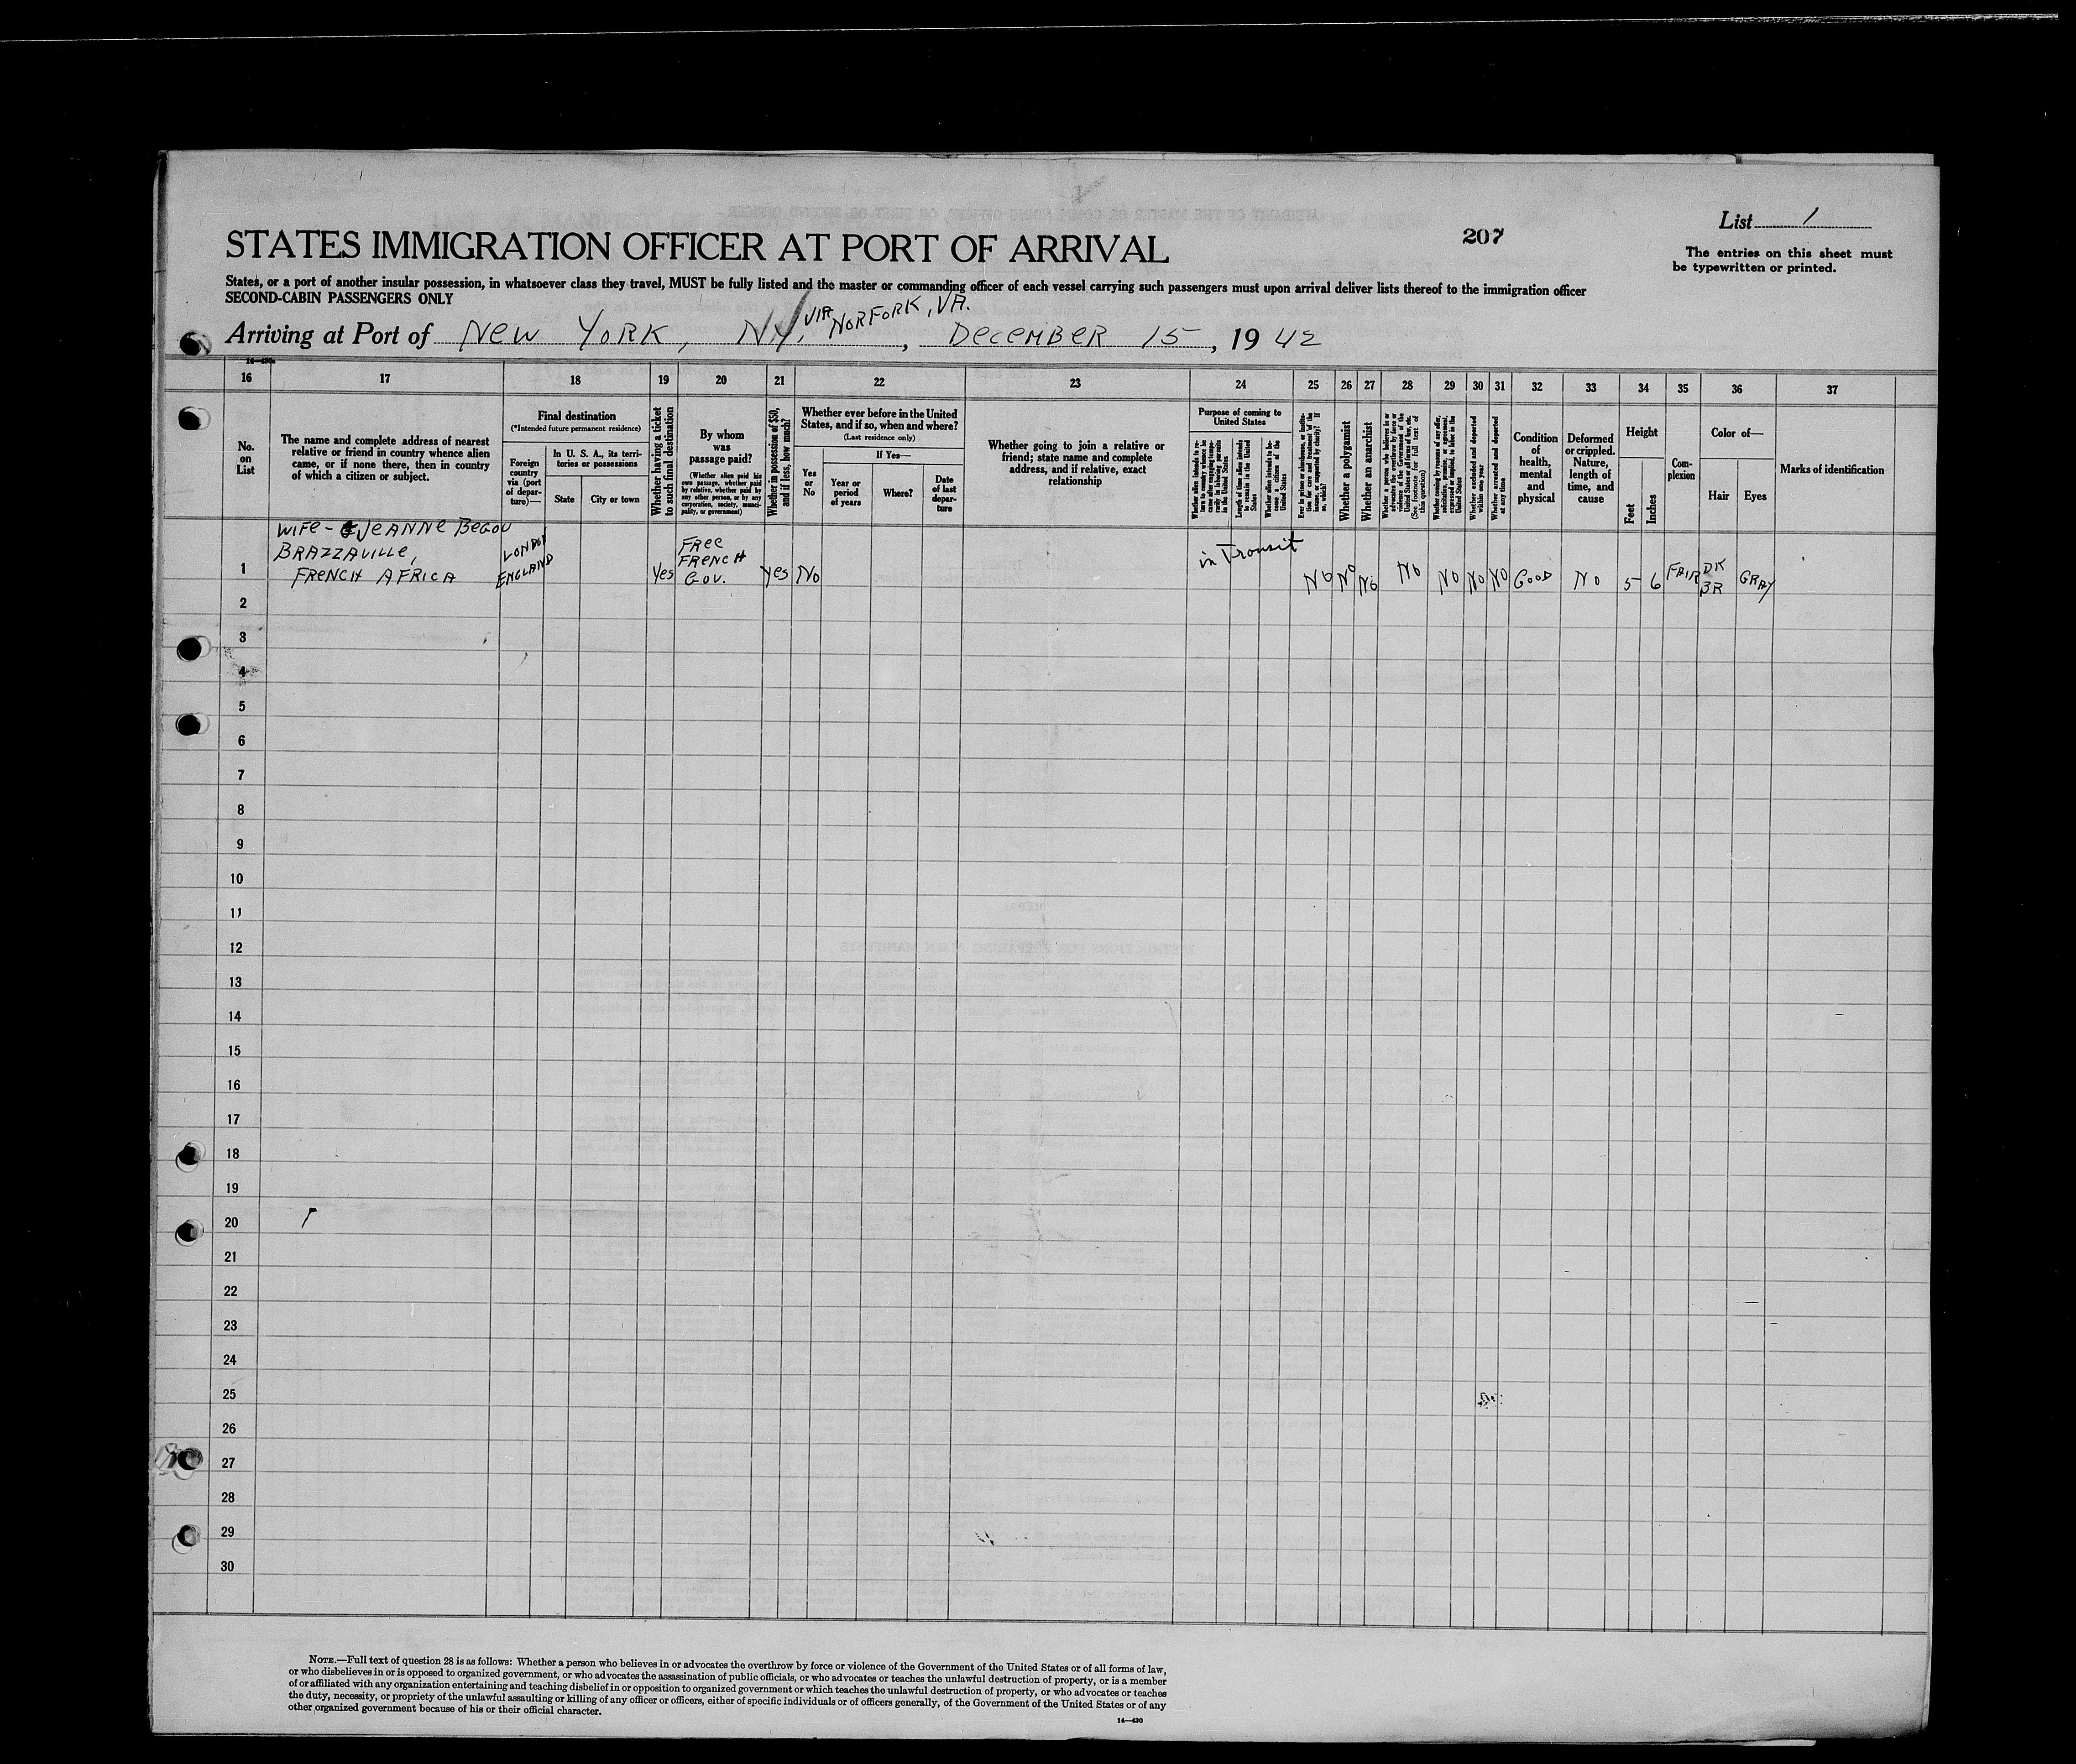 List 1
207
The entries on this sheet must
be typewritten or printed.
STATES IMMIGRATION OFFICER AT PORT OF ARRIVAL
States, or a port of another insular possession, in whatsoever class they travel, MUST be fully listed and the master or commanding officer of each vessel carrying such passengers must upon arrival deliver lists thereof to the immigration officer
SECOND-CABIN PASSENGERS ONLY
Arriving at Port of New York, N.Y. VIA NORFORK, VA., December 15, 1942
14—430
16 17 18 19 20 21 22 23 24 25 26 27 28 29 30 31 32 33 34 35 36 37
No.
on
List
The name and complete address of nearest
relative or friend in country whence alien
came, or if none there, then in country
of which a citizen or subject.
Final destination
(*Intended future permanent residence)
Foreign
country
via (port
of depar-
ture)—
In U. S. A., its terri-
tories or possessions
State
City or town
Whether having a ticket
to such final destination
By whom
was
passage paid?
(Whether alien paid his
own passage, whether paid
by relative, whether paid by
any other person, or by any
corporation, society, munici-
pality, or government)
Whether in possession of $50,
and if less, how much?
Whether ever before in the United
States, and if so, when and where?
(Last residence only)
Yes
or
No
If Yes—
Year or
period
of years
Where?
Date
of last
depar-
ture
Whether going to join a relative or
friend; state name and complete
address, and if relative, exact
relationship
Purpose of coming to
United States
Whether alien intends to re-
turn to country whence he
came after engaging tempo-
rarily in laboring pursuits
in the United States
Length of time alien intends
to remain in the United
States
Whether alien intends to be-
come a citizen of the
United States
Ever in prison or almshouse, or institu-
tion for care and treatment of the
insane, or supported by charity? If
so, which?
Whether a polygamist
Whether an anarchist
Whether a person who believes in or
advocates the overthrow by force or
violence of the Government of the
United States or all forms of law, etc.
(See footnote for full text of
this question)
Whether coming by reason of any offer,
solicitation, promise, or agreement,
expressed or implied, to labor in the
United States
Whether excluded and deported
within one year
Whether arrested and deported
at any time
Condition
of
health,
mental
and
physical
Deformed
or crippled.
Nature,
length of
time, and
cause
Height
Feet
Inches
Com-
plexion
Color of—
Hair
Eyes
Marks of identification
WIFE - JEANNE BEGOU
BRAZZAVILLE,
FRENCH AFRICA
LONDON
ENGLAND
Yes
FREE
FRENCH
GOV.
Yes
No
in Transit
No No No No No No No Good No 5 6 FAIR DK
BR
GRAY
1
2
3
4
5
6
7
8
9
10
11
12
13
14
15
16
17
18
19
20
21
22
23
24
25
26
27
28
29
30
NOTE.—Full text of question 28 is as follows: Whether a person who believes in or advocates the overthrow by force or violence of the Government of the United States or of all forms of law,
or who disbelieves in or is opposed to organized government, or who advocates the assassination of public officials, or who advocates or teaches the unlawful destruction of property, or is a member
of or affiliated with any organization entertaining and teaching disbelief in or opposition to organized government or which teaches the unlawful destruction of property, or who advocates or teaches
the duty, necessity, or propriety of the unlawful assaulting or killing of any officer or officers, either of specific individuals or of officers generally, of the Government of the United States or of any
other organized government because of his or their official character.
14—430